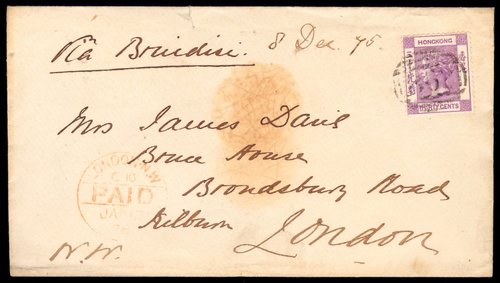 Via Brindisi. 8 Dec 75.
HONGKONG
CENTS
Mrs James Davis
Bruce House
Brondsbury Road
Kilburn
London
N.W.
LONDON N.W.
C 10
PAID
JA